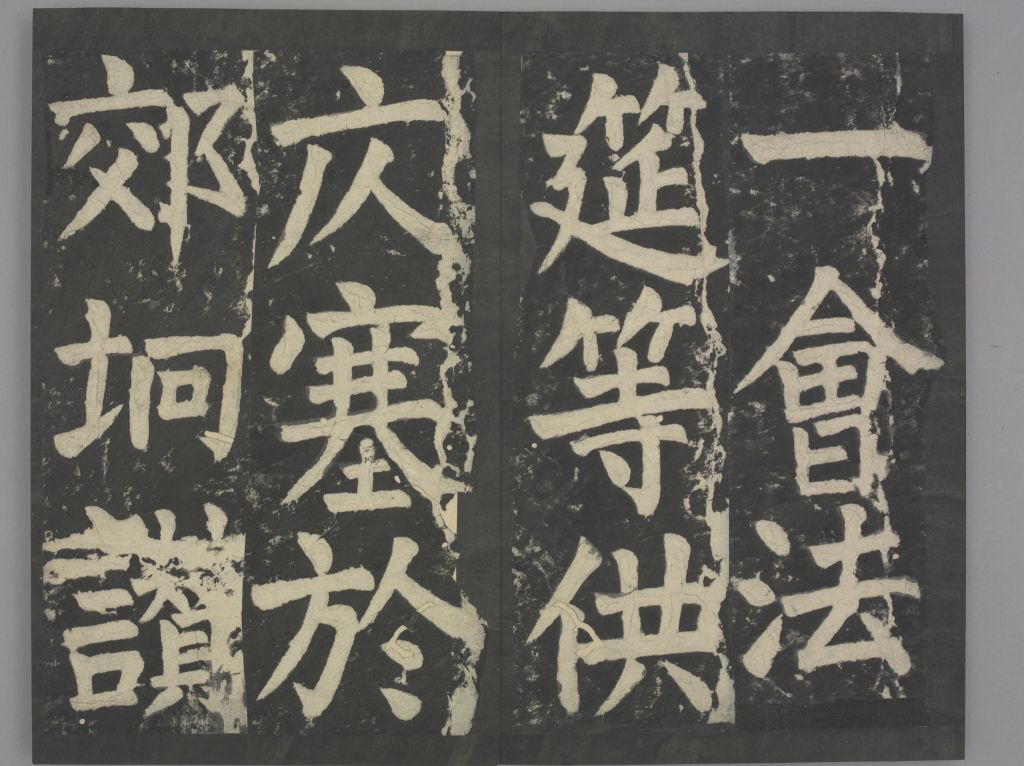 一會法
筵等供
庂塞於
郊坰讚